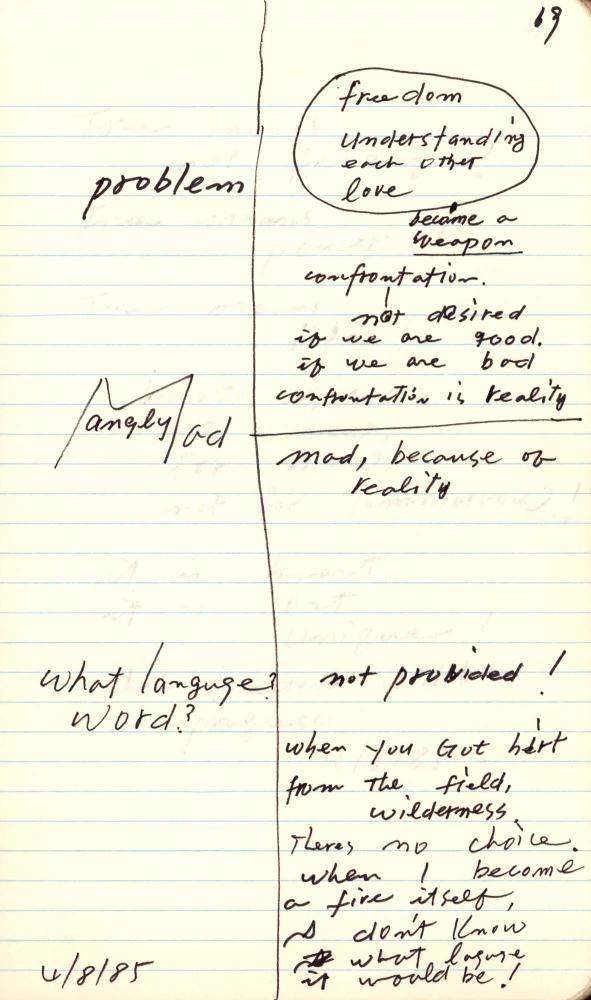 69
freedom
understanding
each other
love
problem
become a
weapon
confrontation.
not desired
if we are good.
if we are bad
confrontation is reality
Mad
angly
mad, because of
reality
what languge?
word?
not provided!
when you Got hirt
from the field,
wilderness.
Theres no choice.
when I become
a fire itself,
I don't know
what laguge
it would be!
4/8/85